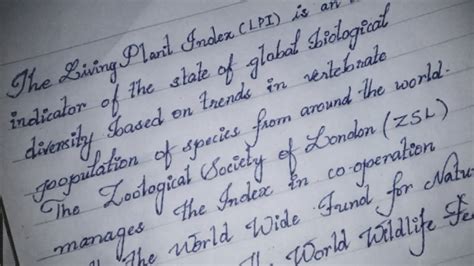 The Living Planit Index (LPI) is an
indicator of the state of global biological
diversity based on trends in vertebrate
population of species from around the world.
The Zoological Society of London (ZSL)
manages the Index in co-operation
the World Wide Fund for Natu
World Wildlife Fe